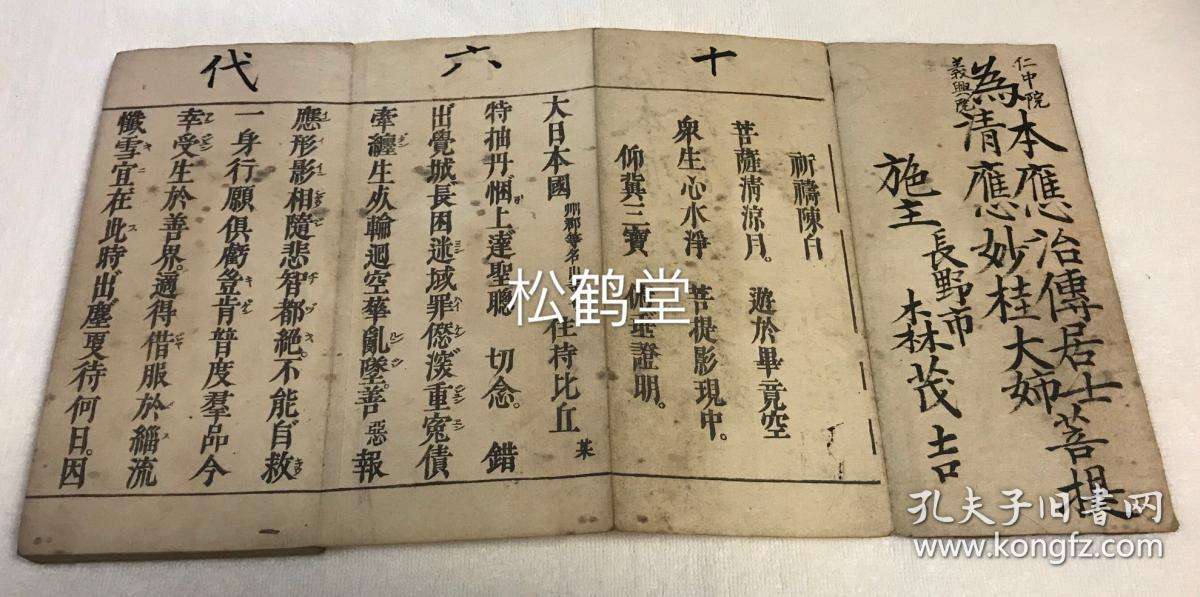 仁中院
義興院
為
本應治傳居士菩提
清應妙桂大姉
施主
長野市
森茂吉
十
六
代
祈禱陳白
菩薩清涼月。 遊於畢竟空
衆生心水淨 菩提影現中。
仰冀三寶 證明。
大日本國 州郡等名山 住持比丘 某
特抽丹悃上達聖聰 切念。 錯
出覺城長困迷域罪僽深重寃債
牽纏生死輪迴空華亂墜善惡報
應形影相隨悲智都絕。不能自救
一身行願俱虧豈肯普度羣品今
幸受生於善界。適得僣服於緇流
懺雪宜在此時出塵更待何日。因
松鹤堂
孔夫子旧书网
www.kongfz.com